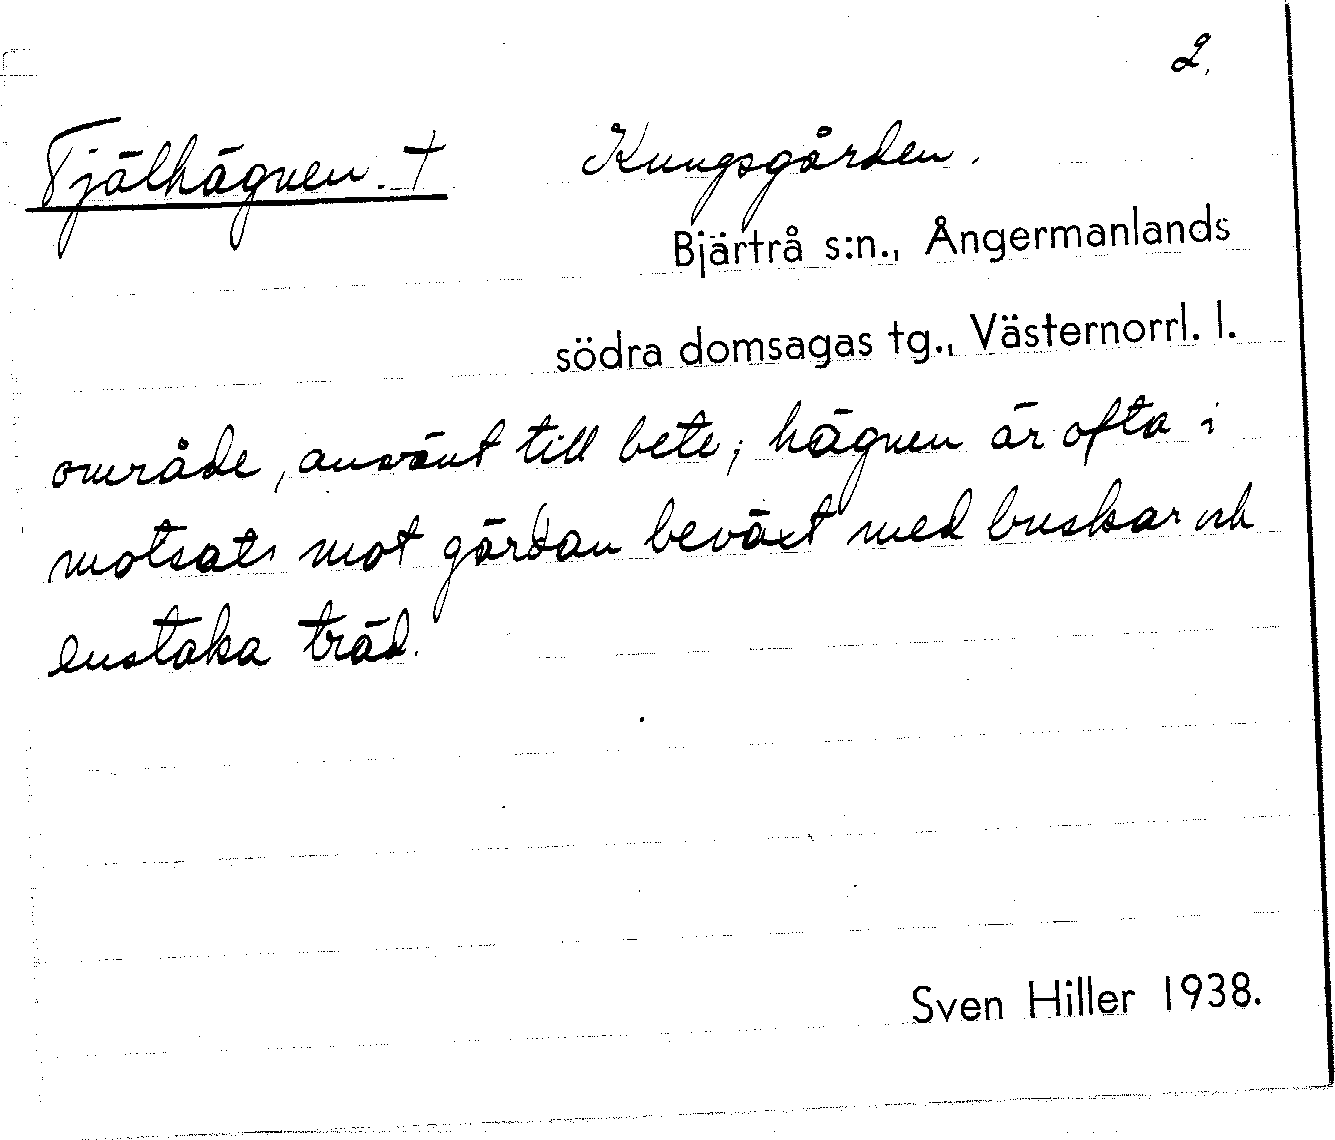 2.
Tjälhägnen. † Kungsgården.
Bjärtrå s:n., Ångermanlands
södra domsagas tg., Västernorrl. l.
område, använt till bete; hägnen är ofta i
motsats mot gärdan beväxt med buskar och
enstaka träd.
Sven Hiller 1938.